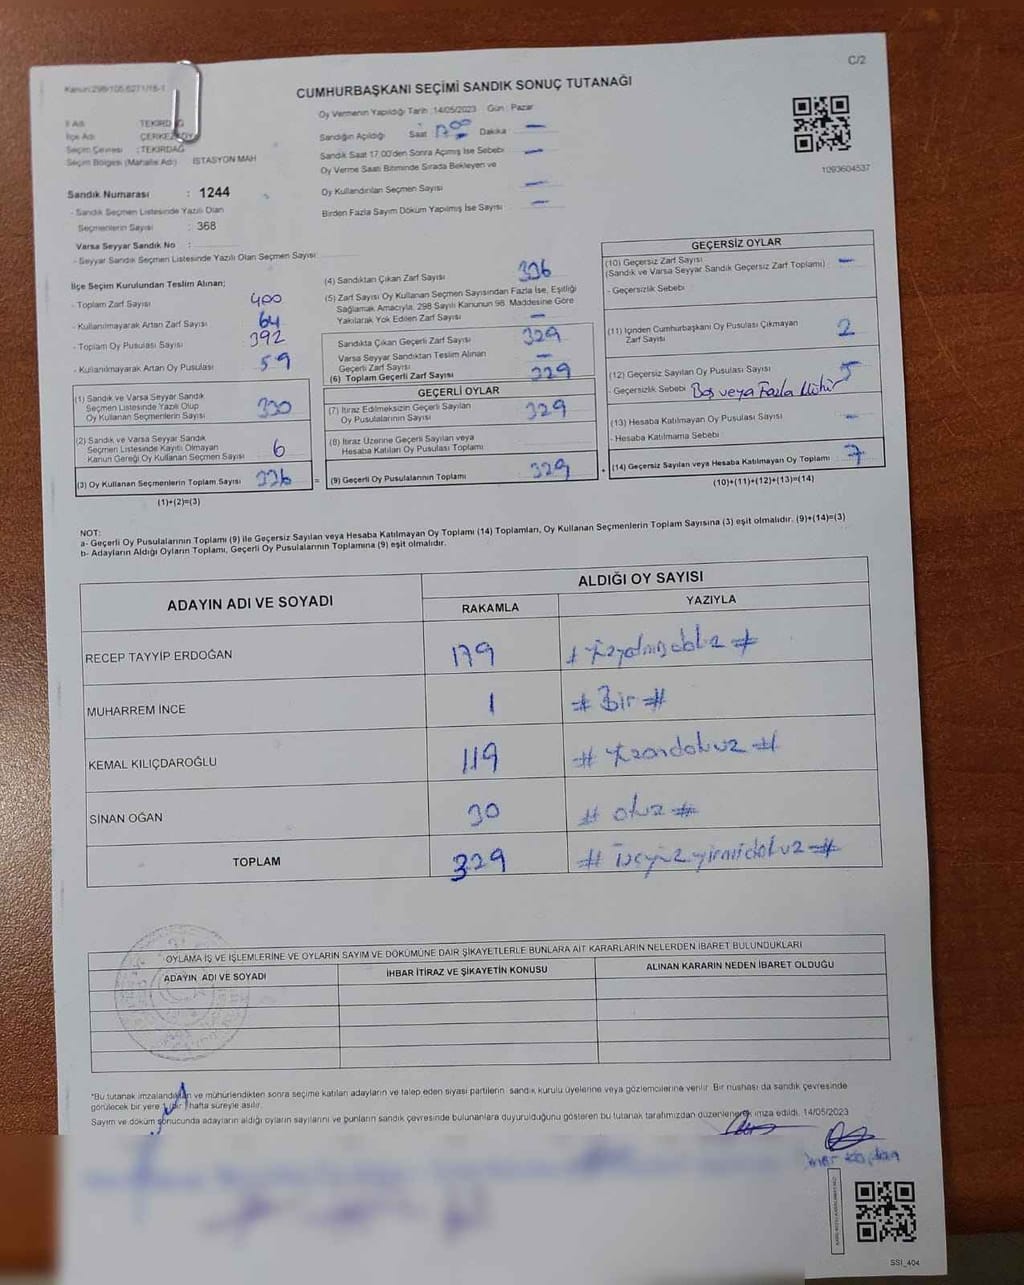 C/2
Kanun:298/105,6271/16-1
CUMHURBAŞKANI SEÇİMİ SANDIK SONUÇ TUTANAĞI
Oy Vermenin Yapıldığı Tarih :14/05/2023 Gün : Pazar
İl Adı TEKİRDAĞ
Sandığın Açıldığı Saat 17 00 Dakika —
İlçe Adı ÇERKEZKÖY
Seçim Çevresi : TEKİRDAĞ
Sandık Saat 17.00'den Sonra Açılmış İse Sebebi —
Seçim Bölgesi (Mahalle Adı) İSTASYON MAH
Oy Verme Saati Bitiminde Sırada Bekleyen ve
1093604537
Oy Kullandırılan Seçmen Sayısı —
Sandık Numarası : 1244
Birden Fazla Sayım Döküm Yapılmış İse Sayısı —
- Sandık Seçmen Listesinde Yazılı Olan
Seçmenlerin Sayısı : 368
Varsa Seyyar Sandık No :
- Seyyar Sandık Seçmen Listesinde Yazılı Olan Seçmen Sayısı:
İlçe Seçim Kurulundan Teslim Alınan;
- Toplam Zarf Sayısı 400
- Kullanılmayarak Artan Zarf Sayısı 64
- Toplam Oy Pusulası Sayısı 392
- Kullanılmayarak Artan Oy Pusulası 59
(1) Sandık ve Varsa Seyyar Sandık
Seçmen Listesinde Yazılı Olup
Oy Kullanan Seçmenlerin Sayısı 330
(2) Sandık ve Varsa Seyyar Sandık
Seçmen Listesinde Kayıtlı Olmayan
Kanun Gereği Oy Kullanan Seçmen Sayısı 6
(3) Oy Kullanan Seçmenlerin Toplam Sayısı 336 =
(1)+(2)=(3)
(4) Sandıktan Çıkan Zarf Sayısı 336
(5) Zarf Sayısı Oy Kullanan Seçmen Sayısından Fazla İse, Eşitliği
Sağlamak Amacıyla, 298 Sayılı Kanunun 98. Maddesine Göre
Yakılarak Yok Edilen Zarf Sayısı —
Sandıkta Çıkan Geçerli Zarf Sayısı 329
Varsa Seyyar Sandıktan Teslim Alınan
Geçerli Zarf Sayısı —
(6) Toplam Geçerli Zarf Sayısı 329
GEÇERLİ OYLAR
(7) İtiraz Edilmeksizin Geçerli Sayılan
Oy Pusulalarının Sayısı 329
(8) İtiraz Üzerine Geçerli Sayılan veya
Hesaba Katılan Oy Pusulası Toplamı
(9) Geçerli Oy Pusulalarının Toplamı 329 +
GEÇERSİZ OYLAR
(10) Geçersiz Zarf Sayısı —
(Sandık ve Varsa Seyyar Sandık Geçersiz Zarf Toplamı) :
- Geçersizlik Sebebi
(11) İçinden Cumhurbaşkanı Oy Pusulası Çıkmayan
Zarf Sayısı 2
(12) Geçersiz Sayılan Oy Pusulası Sayısı 5
- Geçersizlik Sebebi Boş veya Fazla Mühür
(13) Hesaba Katılmayan Oy Pusulası Sayısı —
- Hesaba Katılmama Sebebi
(14) Geçersiz Sayılan veya Hesaba Katılmayan Oy Toplamı 7
(10)+(11)+(12)+(13)=(14)
NOT:
a- Geçerli Oy Pusulalarının Toplamı (9) ile Geçersiz Sayılan veya Hesaba Katılmayan Oy Toplamı (14) Toplamları, Oy Kullanan Seçmenlerin Toplam Sayısına (3) eşit olmalıdır. (9)+(14)=(3)
b- Adayların Aldığı Oyların Toplamı, Geçerli Oy Pusulalarının Toplamına (9) eşit olmalıdır.
ADAYIN ADI VE SOYADI ALDIĞI OY SAYISI
RAKAMLA YAZIYLA
RECEP TAYYİP ERDOĞAN 179 # Yüzyetmişdokuz #
MUHARREM İNCE 1 # Bir #
KEMAL KILIÇDAROĞLU 119 # Yüzondokuz #
SİNAN OĞAN 30 # otuz #
TOPLAM 329 # üçyüzyirmidokuz #
OYLAMA İŞ VE İŞLEMLERİNE VE OYLARIN SAYIM VE DÖKÜMÜNE DAİR ŞİKAYETLERLE BUNLARA AİT KARARLARIN NELERDEN İBARET BULUNDUKLARI
ADAYIN ADI VE SOYADI İHBAR İTİRAZ VE ŞİKAYETİN KONUSU ALINAN KARARIN NEDEN İBARET OLDUĞU
*Bu tutanak imzalandıktan ve mühürlendikten sonra seçime katılan adayların ve talep eden siyasi partilerin sandık kurulu üyelerine veya gözlemcilerine verilir. Bir nüshası da sandık çevresinde
görülecek bir yere 1 (bir) hafta süreyle asılır.
Sayım ve döküm sonucunda adayların aldığı oyların sayılarını ve bunların sandık çevresinde bulunanlara duyurulduğunu gösteren bu tutanak tarafımızdan düzenlenerek imza edildi. 14/05/2023
SSI_404